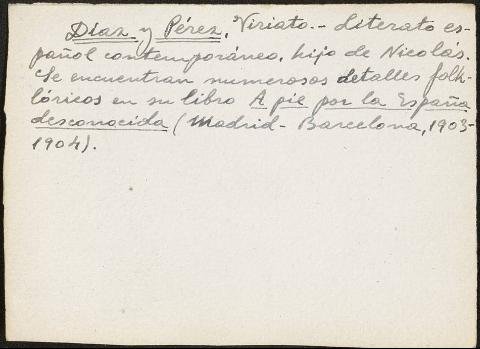 Díaz y Pérez, Viriato.- Literato es-
pañol contemporáneo, hijo de Nicolás.
Se encuentran numerosos detalles folk-
lóricos en su libro A pie por la España
desconocida (Madrid - Barcelona, 1903-
1904).